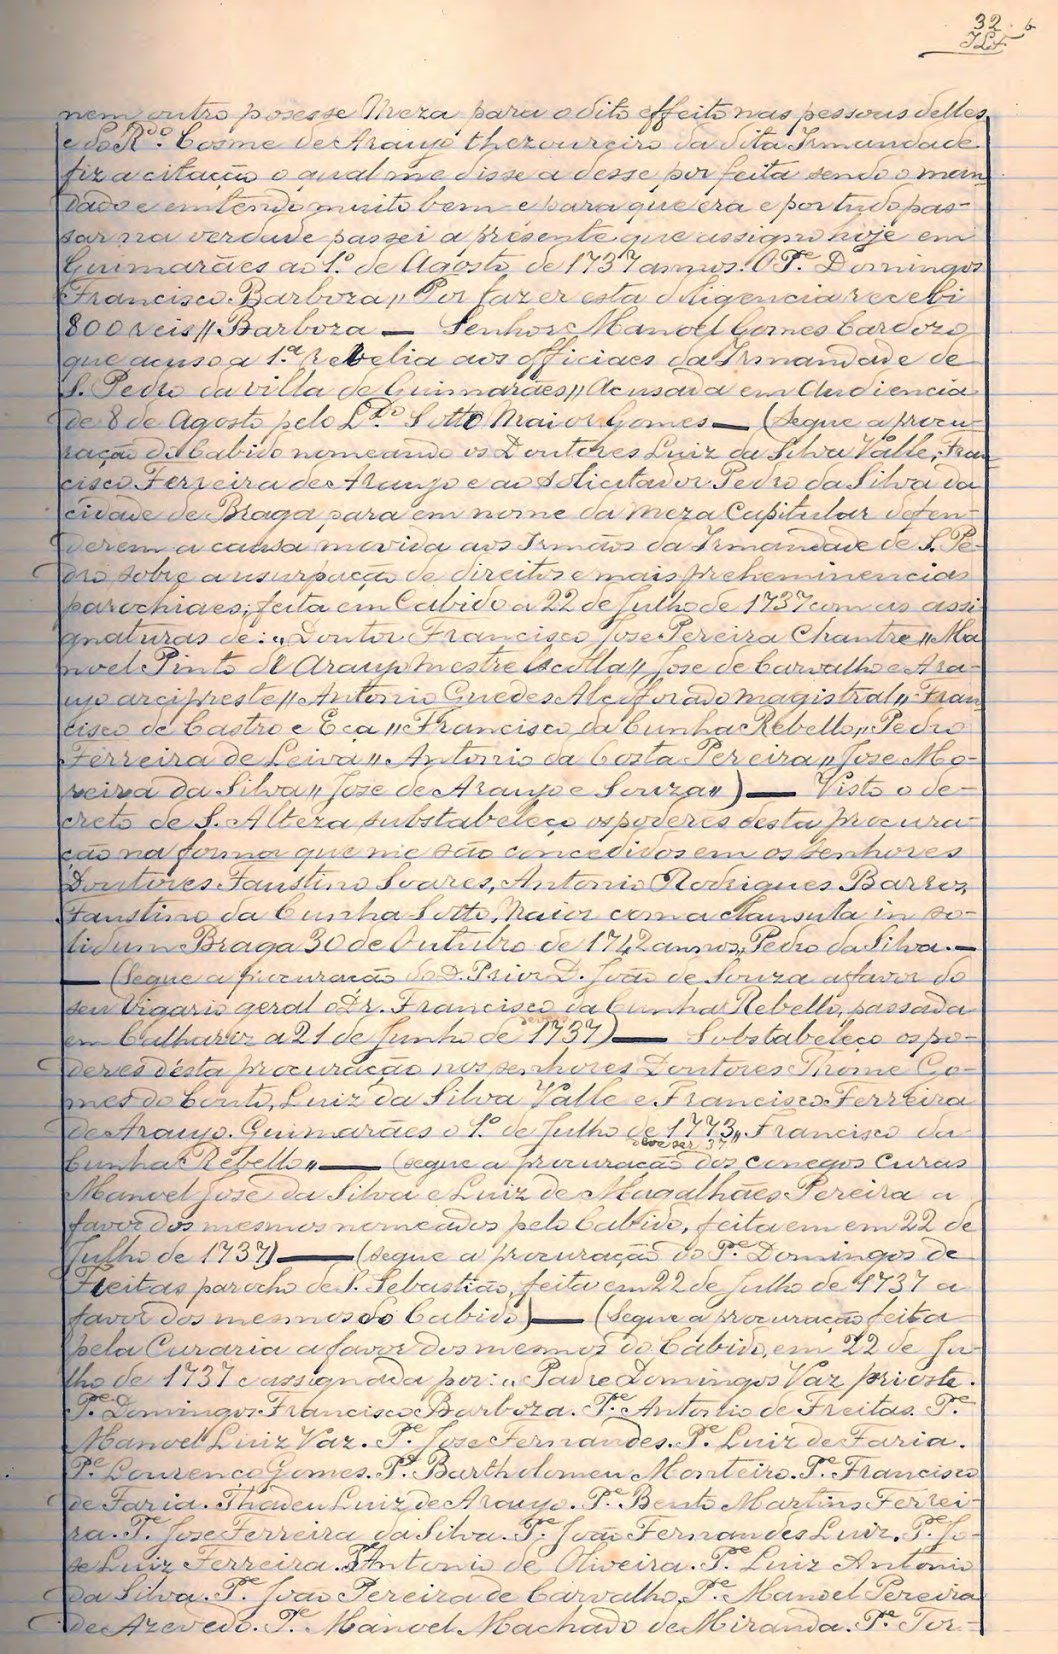 32
nem outro posesse Meza para o dito effeito nas pessoas delles
e do R.do Cosme de Araujo thezoureiro da dita Irmandade
fiz a citação o qual me disse a desse por feita sendo o man-
dado e emtendo muito bem e para que era e por tudo pas-
sar na verdade passei a presente que assigno hoje em
Guimarães ao 1.º de Agosto de 1737 annos. O P.e Domingos
Francisco Barboza,, Por fazer esta diligencia recebi
800 reis,, Barboza — Senhor Manoel Gomes Cardozo
que acuso a 1.ª rebelia aos officiaes da Irmandade de
S. Pedro da villa de Guimarães,, Acusada em Audiencia
de 8 de Agosto pelo L.do Sotto Maior Gomes — (Segue a procu-
ração do Cabido nomeando os Doutores Luiz da Silva Valle, Fran-
cisco Ferreira de Araujo e ao solicitador Pedro da Silva da
cidade de Braga para em nome da meza Capitular defen-
derem a causa movida aos Irmãos da Irmandade de S. Pe-
dro sobre a usurpação de direitos e mais preheminencias
parochiaes; feita em Cabido a 22 de Julho de 1737 com as assi-
gnaturas de: ,,Doutor Francisco Jose Pereira Chantre,, Ma-
noel Pinto de Araujo mestre Escolla,, Jose de Carvalho e Ara-
ujo arcipreste,, Antonio Guedes Alcoforado magistral,, Fran-
cisco de Castro e Eça,, Francisco da Cunha Rebello,, Pedro
Ferreira de Leiva,, Antonio da Costa Pereira,, Jose Mo-
reira da Silva,, Jose de Araujo e Souza,,) — Visto o de-
creto de S. Alteza substabeleço os poderes desta procura-
ção na forma que me são concedidos em os senhores
Doutores Faustino Soares, Antonio Rodrigues Barros,
Faustino da Cunha Sotto Maior com a clausula in so-
lidum Braga 30 de Outubro de 1742 annos,, Pedro da Silva. —
— (Segue a procuração do D. Prior D. João de Souza a favor do
seu Vigario geral o Dr. Francisco da Cunha Rebello, passada
em Calhariz a 21 de Junho de 1737) — Substabeleço os po-
deres désta procuração nos senhores Doutores Thome Go-
mes do Couto, Luiz da Silva Valle e Francisco Ferreira
de Araujo. Guimarães o 1.º de Julho de 1773,, Francisco da
deve ser 37
Cunha Rebello,, — (segue a procuração dos conegos curas
Manoel José da Silva e Luiz de Magalhães Pereira a
favor dos mesmos nomeados pelo Cabido, feita em em 22 de
Julho de 1737) — (segue a procuração do P.e Domingos de
Freitas parocho de S. Sebastião, feita em 22 de Julho de 1737 a
favor dos mesmos do Cabido) — (Segue a procuração feita
pela Curaria a favor dos mesmos do Cabido, em 22 de Ju-
lho de 1737 e assignada por: ,, Padre Domingos Vaz prioste.
P.e Domingos Francisco Barboza. P.e Antonio de Freitas. P.e
Manoel Luiz Vaz. P.e Jose Fernandes. P.e Luiz de Faria.
P.e Lourenço Gomes. P.e Bartholomeu Monteiro. P.e Francisco
de Faria. Thadeu Luiz de Araujo. P.e Bento Martins Ferrei-
ra. P.e Jose Ferreira da Silva. P.e João Fernandes Luiz. P.e Jo-
se Luiz Ferreira. P.e Antonio de Oliveira. P.e Luiz Antonio
da Silva. P.e João Pereira de Carvalho. P.e Manoel Pereira
de Azevedo. P.e Manoel Machado de Miranda. P.e Tor-